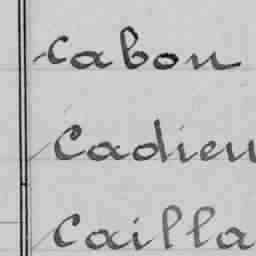 Cabon
Cadieu
Cailla